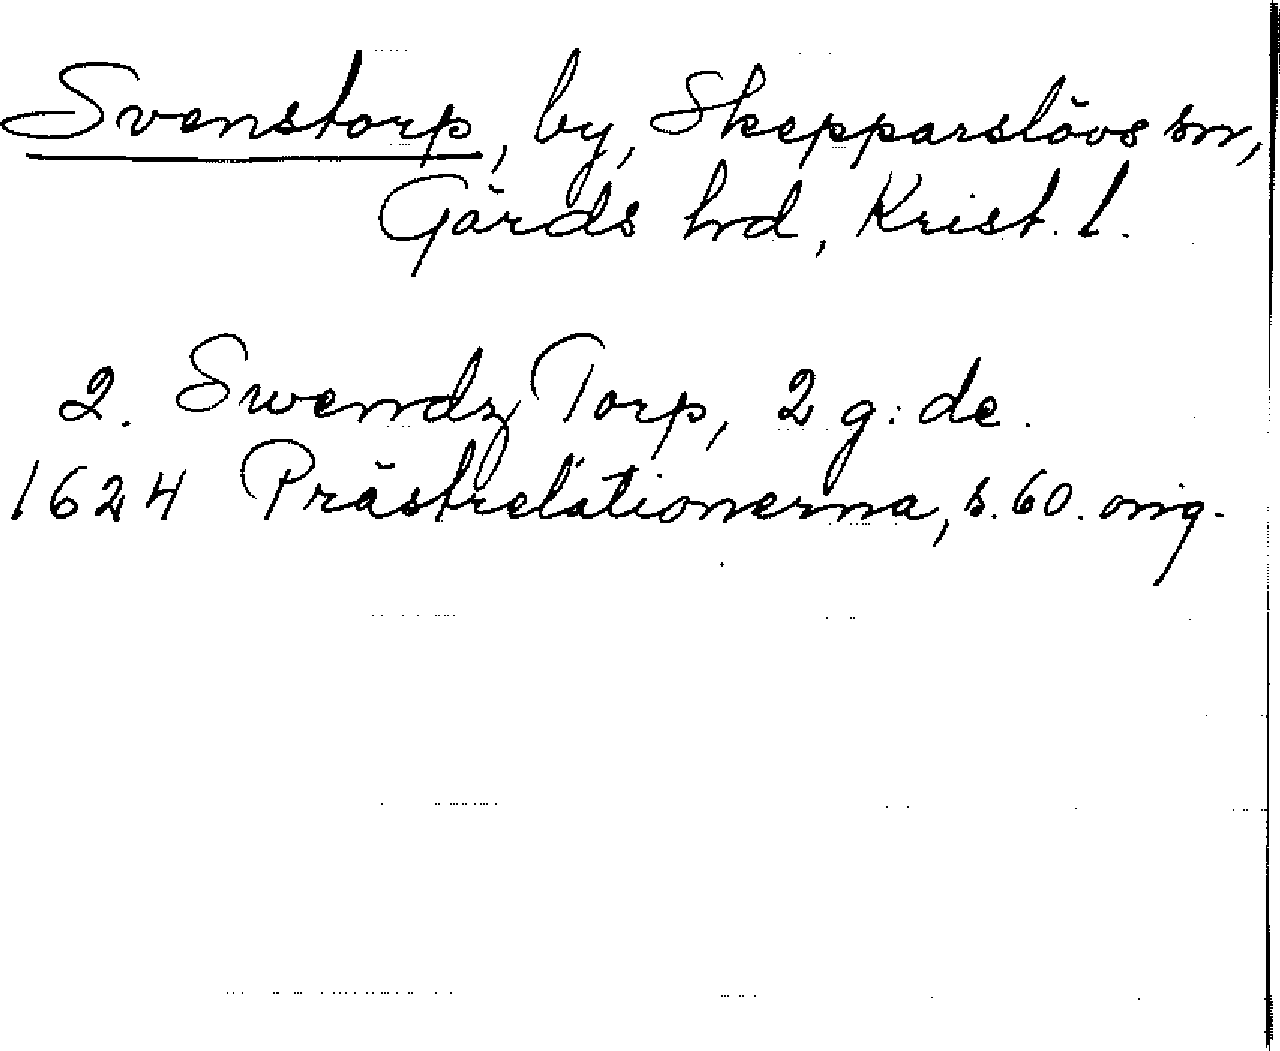 Svenstorp, by, Skepparslövs sn,
Gärds hd, Krist. l.
2. Swendz Torp, 2 g:de.
1624 Prästrelationerna, s. 60. orig.